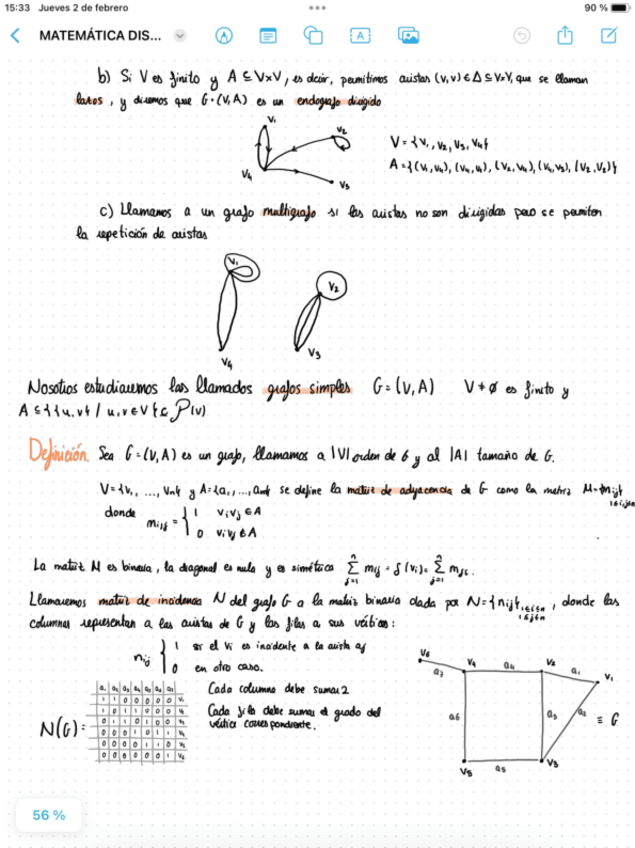 15:33 Jueves 2 de febrero
90 %
MATEMÁTICA DIS...
b) Si V es finito y A ⊆ V×V, es decir, permitimos aristas (v,v) ∈ Δ ⊆ V×V, que se llaman
lazos, y diremos que G=(V,A) es un endografo dirigido
V₁
V₂
V₄
V₃
V = {V₁, V₂, V₃, V₄}
A = {(V₁,V₄), (V₄,V₁), (V₂,V₄), (V₄,V₃), (V₂,V₂)}
c) Llamamos a un grafo multigrafo si las aristas no son dirigidas pero se permiten
la repetición de aristas
V₁
V₂
V₃
V₄
Nosotros estudiaremos los llamados grafos simples G=(V,A) V≠∅ es finito y
A ⊆ {{u,v} / u,v ∈ V} ⊆ P(V)
Definición. Sea G=(V,A) es un grafo, llamamos a |V| orden de G y al |A| tamaño de G.
V={V₁, ..., Vn} y A={a₁, ..., am} se define la matriz de adyacencia de G como la matriz M={mij}
1≤i,j≤n
donde
mij = { 1 ViVj ∈ A
0 ViVj ∉ A
La matriz M es binaria, la diagonal es nula y es simétrica Σ mij = δ(Vi) = Σ mji.
Llamaremos matriz de incidencia N del grafo G a la matriz binaria dada por N={nij} 1≤i≤n 1≤j≤m, donde las
columnas representan a las aristas de G y las filas a sus vértices:
nij { 1 si el Vi es incidente a la arista aj
0 en otro caso.
Cada columna debe sumar 2
Cada fila debe sumar el grado del
vértice correspondiente.
N(G)=
a₁ a₂ a₃ a₄ a₅ a₆ a₇
1 1 0 0 0 0 0 V₁
1 0 1 1 0 0 0 V₂
0 1 1 0 1 0 0 V₃
0 0 0 1 0 1 1 V₄
0 0 0 0 1 1 0 V₅
0 0 0 0 0 0 1 V₆
V₆
V₄
a₄
V₂
a₁
V₁
a₇
a₆
a₃
a₂
≡ G
V₅
a₅
V₃
56 %